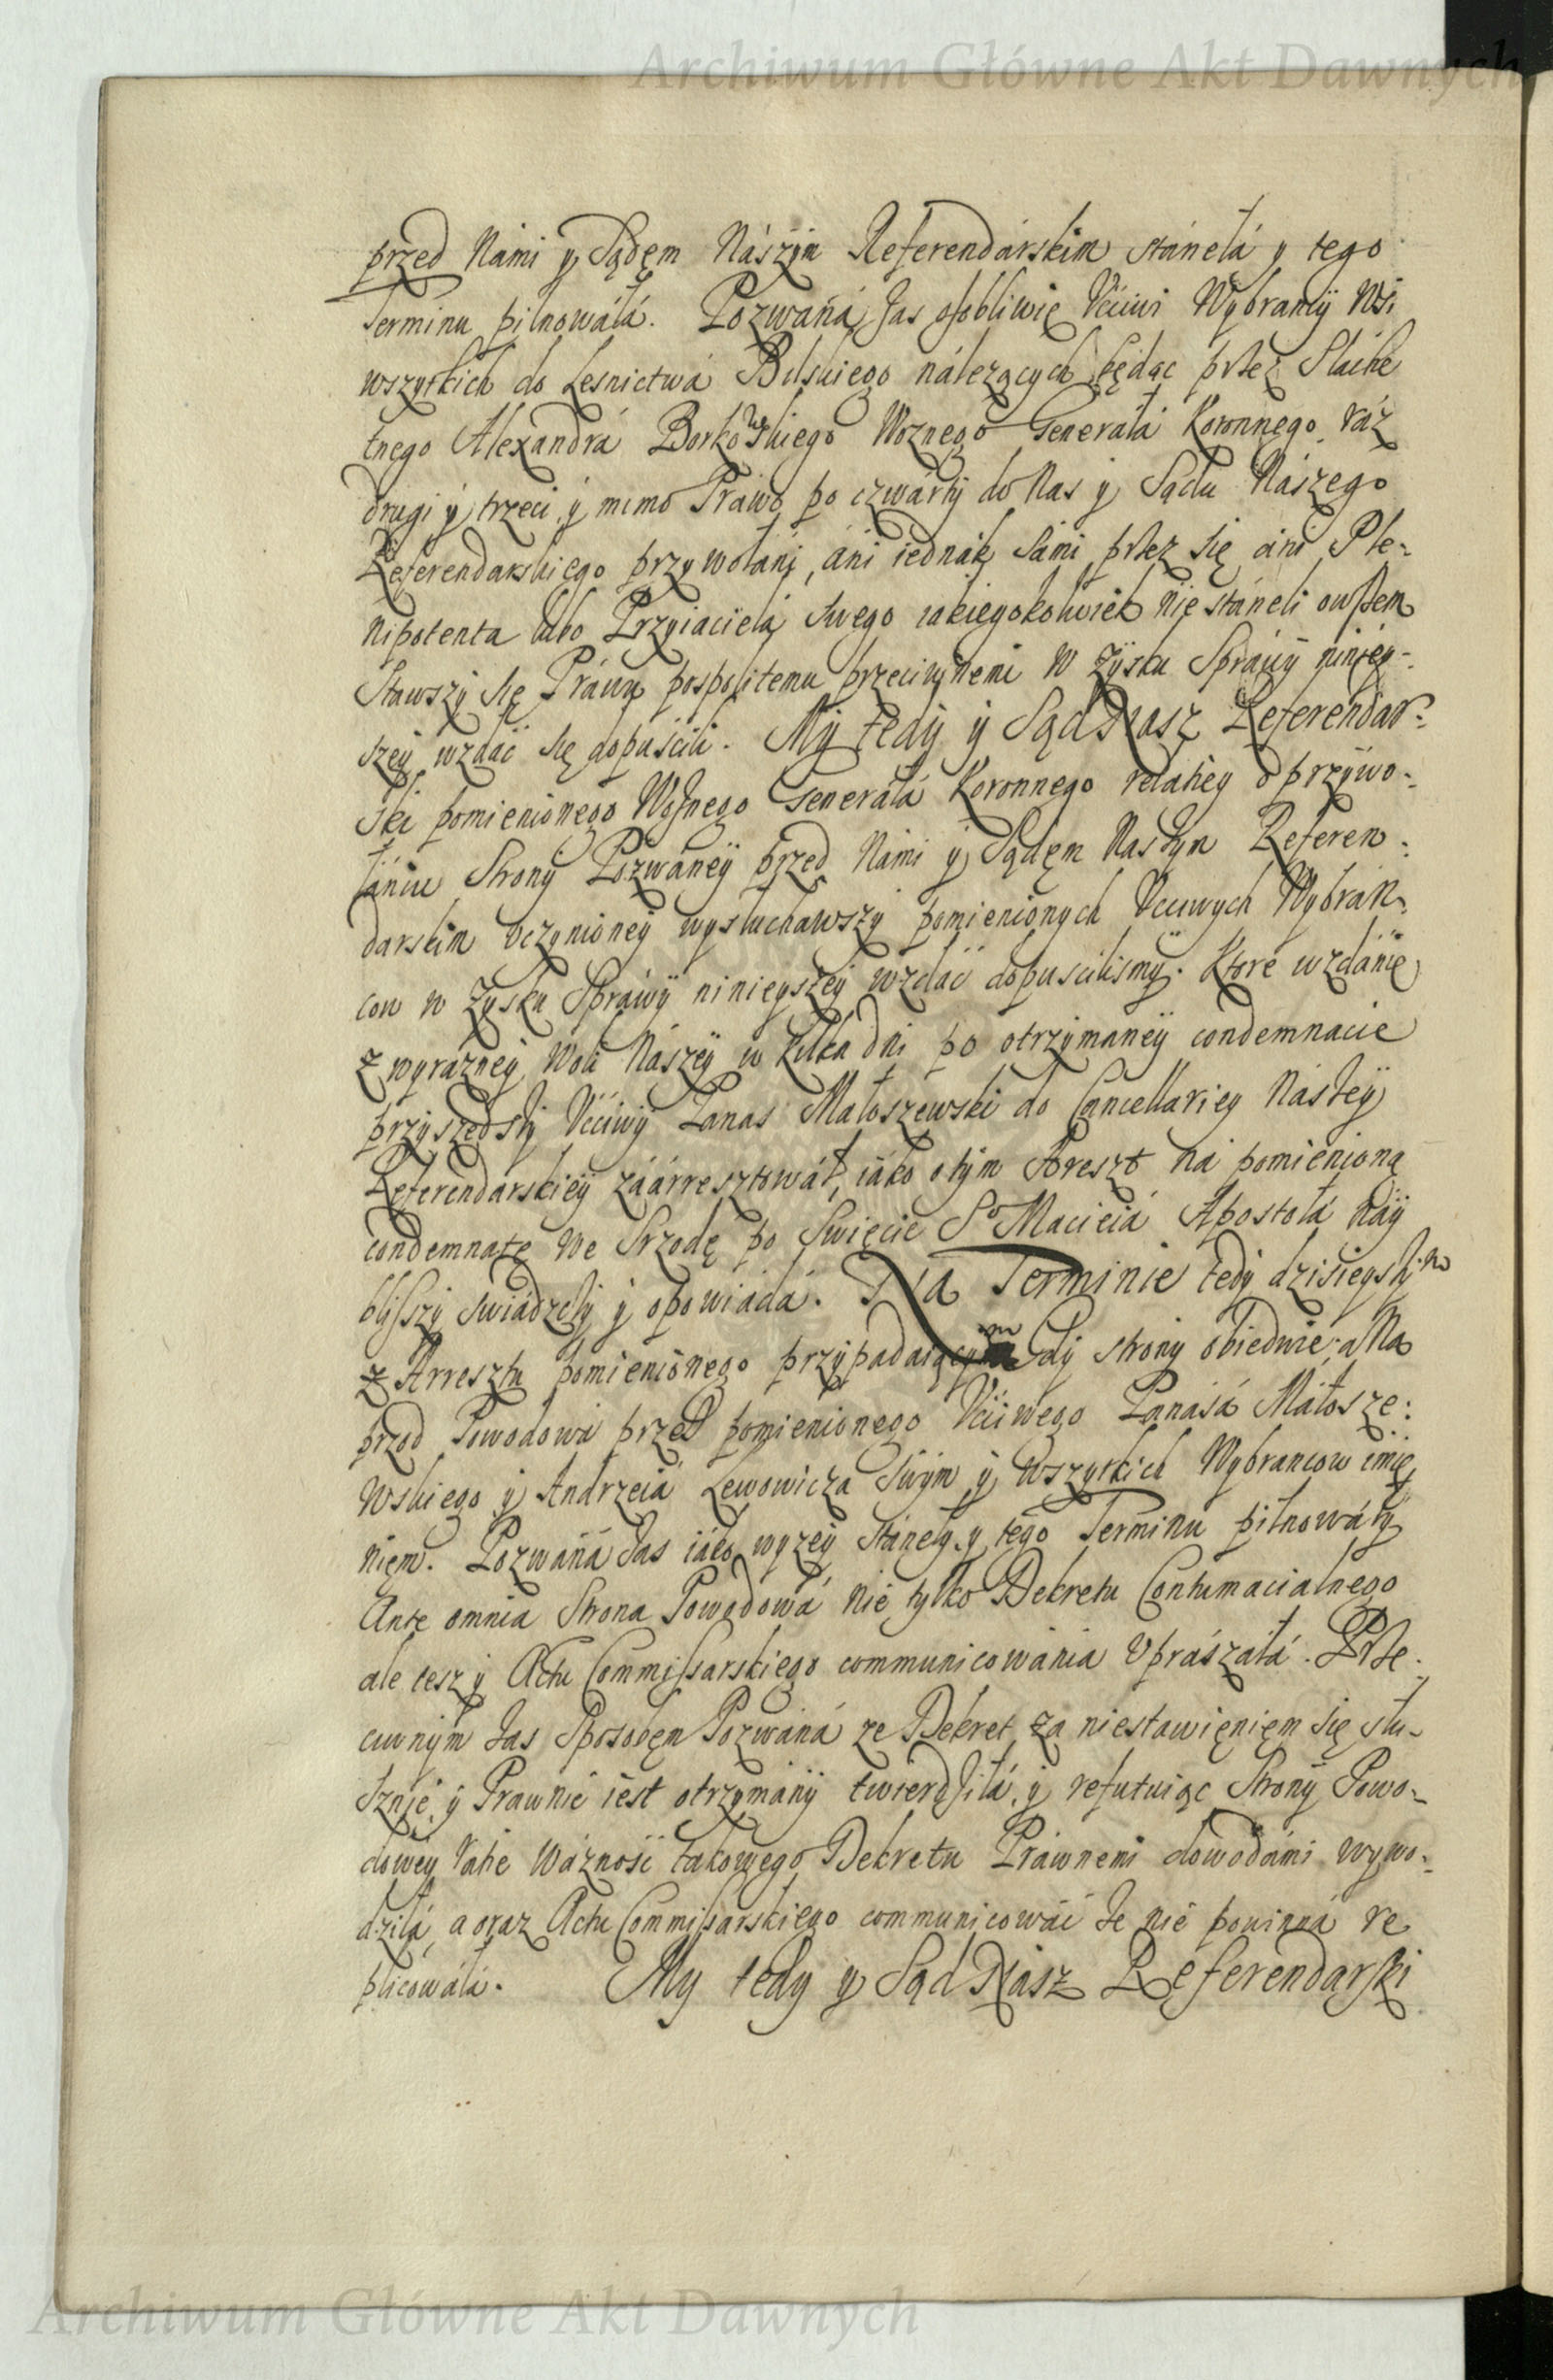 Archiwum Główne Akt Dawnych
przed Nami y Sądem Nászym Referendárskim stánełá y tego
Terminu pilnowáłá. Pozwána zas osobliwie Vććiwi Wybráncy Wsi
wszytkich do Lesnictwá Bilskiego náleżących będąc przez Slache
tnego Alexandrá Borkowskiego Woznego Generałá Koronnego raz
drugi y trzeci y mimo Prawo po czwárty do Nas y Sądu Nászego
Referendarskiego przywołáni, áni iednák sámi przez się áni Ple-
nipotenta lubo Przyiacielá swego iakiegokolwiek nie stáneli owszem
Stawszy się Práwu pospolitemu przeciwnemi w Zysku Spráwy niniey-
szey wzdáć się dopuścili. My tedy y Sąd Nasz Referendar-
ski pomienionego Woznego Generałá Koronnego relatiey o przywo-
łániu Strony Pozwáney przed Námi y Sądem Naszym Referen-
darskim vczynioney wysłuchawszy pomienionych Vććiwych Wybrán-
cow w Zysku Spráwy ninieyszey wzdáć dopuścilismy. Ktore wzdánie
z wyrázney Woli Nászey w kilka dni po otrzymáney condemnacie
przyszedszy Vććiwy Panas Małoszewski do Cancellariey Naszey
Referendárskiey záárresztowáł, iáko o tym Areszt ná pomienioną
condemnatę we Srzodę po Swięcie So Macieiá Apostołá nay
bliszszy swiádczy y opowiádá. Na Terminie tedy dzisieyszym
z Arresztu pomienionego przypadaiącym gdy strony obiedwie, a Na
przod Powodowá przez pomienionego Vććiwego Panásá Máłosze-
wskiego y Andrzeiá Lewowicza swym y wszytkich Wybrancow imie
niem. Pozwána zas iáko wyzey stáneły y tego Terminu pilnowáły
Ante omnia Strona Powodowá nie tylko Dekretu Contumacialnego
ale tesz y Actu Commissarskiego communicowánia vprászáłá. Prze-
ciwnym zas Sposobem Pozwáná ze Dekret za niestawieniem się słu-
sznie y Prawnie iest otrzymány twierdziłá, y refutuiąc Strony Powo-
dowey ratie wáżność takowego Dekretu Práwnemi dowodámi wywo-
dziłá, a oraz Actu Commissarskiego communicowáć ze nie powinná re
plicowáłá. My tedy y Sąd Nász Referendarski
Archiwum Główne Akt Dawnych